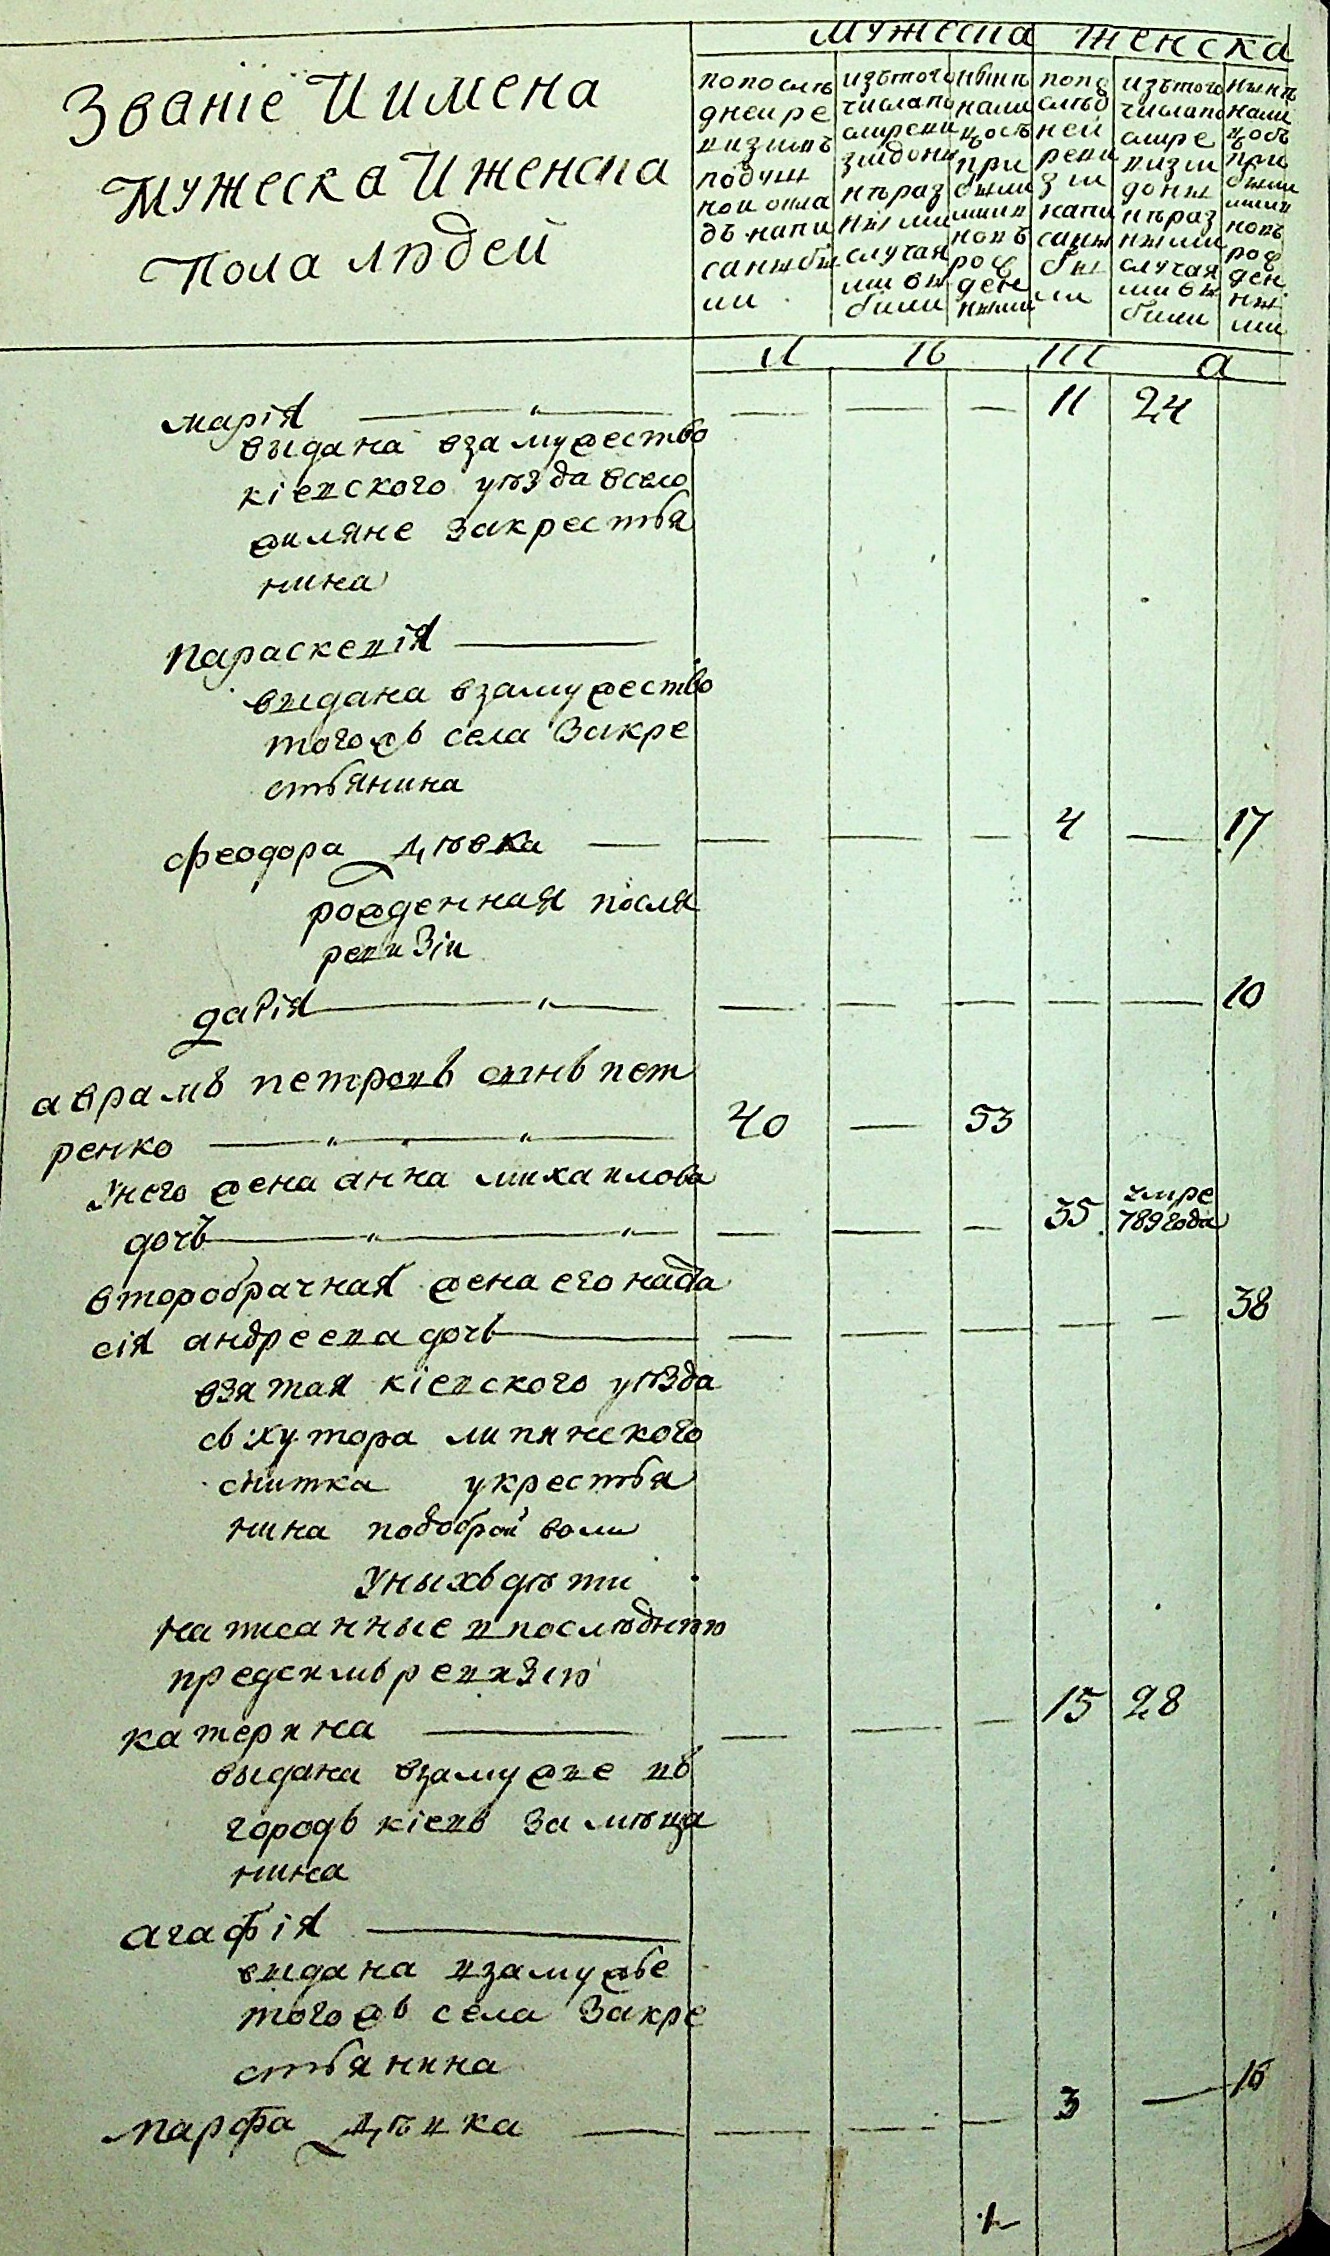 Званіе И имена
Мужеска И женска
Пола людей
мужеска женска
попослѣ
днеи ре
визіи въ
подуш
нои окла
дъ напи
саны бы
ли
изътого
числа по
слѣ реви
зіи до ны
нѣ раз
ными
случая
ми вы
были
нынѣ
нали
цо съ
при
были
ми и
новъ
рож
ден
ными
попо
слѣд
ней
реви
зіи
напи
саны
бы
ли
изътого
числа по
слѣ ре
визіи
до ны
нѣ раз
ными
случая
ми вы
были
нынѣ
нали
цо съ
при
были
ми и
новъ
рож
ден
ны
ми
марія 11 24
выдана взамужество
кіевского уѣзда всело
жиляне Закрестья
нина
Параскевія
выдана взамужество
тогожъ села Закре
стьянина
феодора Дѣвка 4 17
рожденная посля
ревизіи
дарія 10
аврамъ петровъ сынъ пет
ренко 40 53
Унего жена анна михаилова
дочь 35 умре 789 года
второбрачная жена его наста
сія андреева дочь 38
взятая кіевского уѣзда
съ хутора липинского
снитка укрестья
нина подоброй воли
Уныхъ дѣти
написанные впослѣднюю
предсимъ ревизію
катерина 15 28
выдана взамужве въ
городъ кіевъ за мѣща
нина
агафія
выдана взамужье
тогожъ села Закре
стьянина
марфа Дѣвка 3 16
1